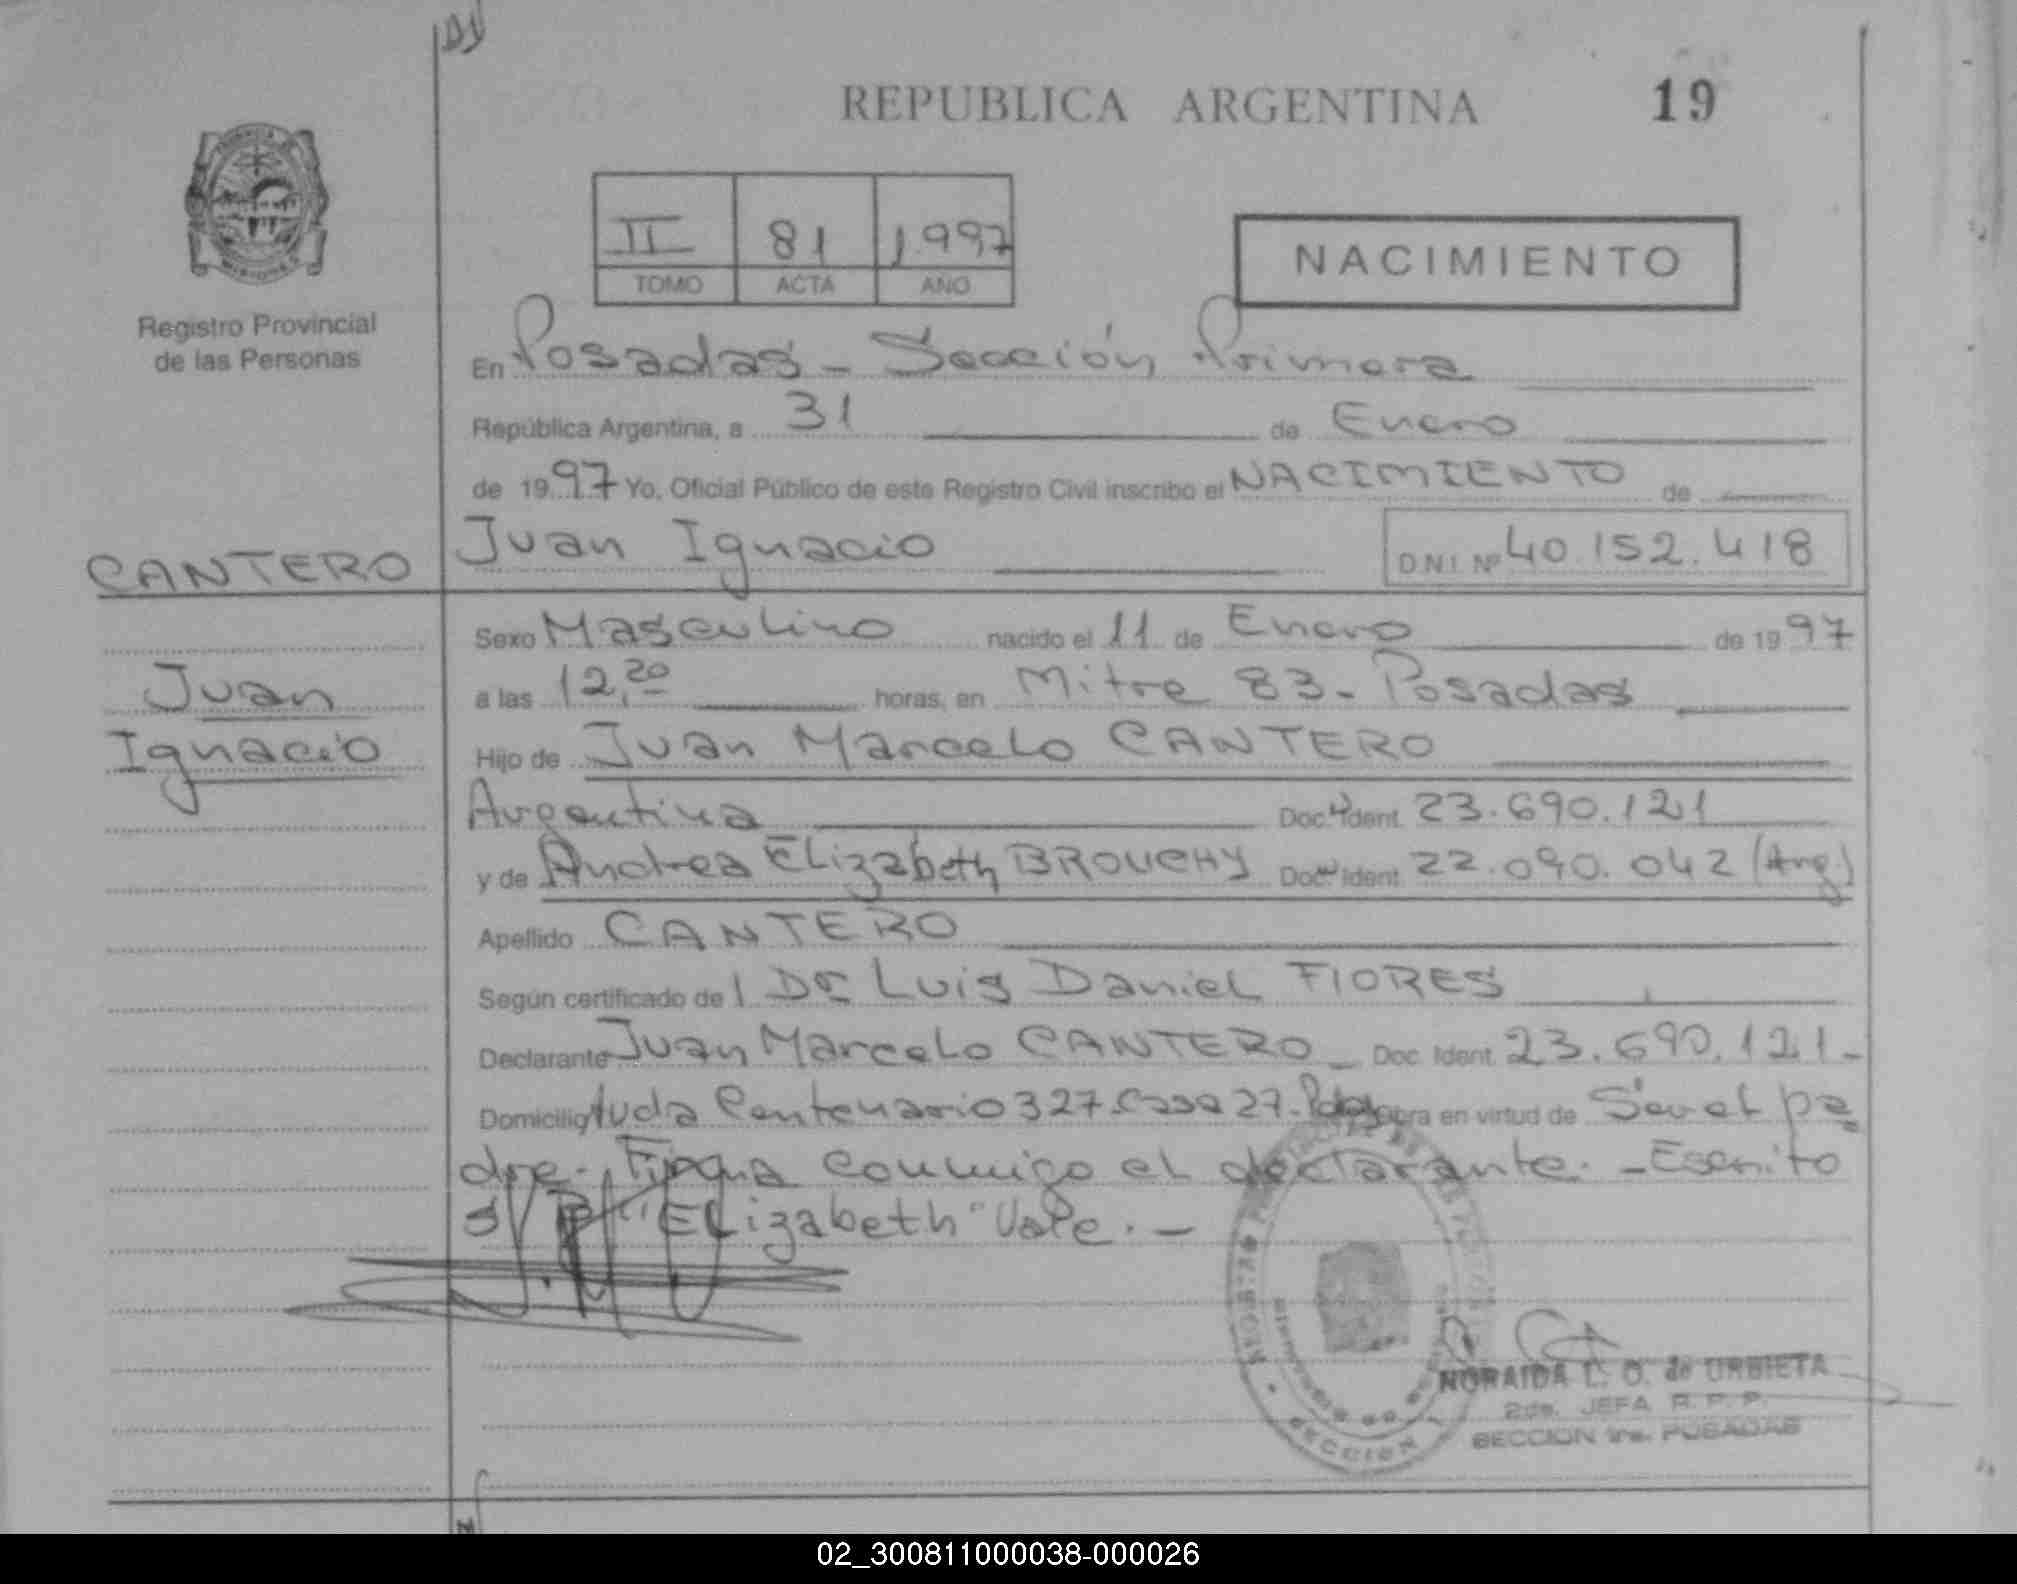 REPUBLICA ARGENTINA 19
II 81 1.997
TOMO ACTA AÑO
NACIMIENTO
Registro Provincial
de las Personas
En Posadas - Sección Primera
República Argentina, a 31 de Enero
de 1997 Yo, Oficial Público de este Registro Civil inscribo el NACIMIENTO de
CANTERO
Juan Ignacio D.N.I. Nº 40.152.418
Juan
Ignacio
Sexo Masculino nacido el 11 de Enero de 1997
a las 12,20 horas, en Mitre 83 - Posadas
Hijo de Juan Marcelo CANTERO
Argentina Doc. Ident. 23.690.121
y de Andrea Elizabeth BROUCHY Doc. Ident. 22.090.042 (Arg.)
Apellido CANTERO
Según certificado de Dr Luis Daniel FIORES
Declarante Juan Marcelo CANTERO - Doc. Ident. 23.690.121-
Domicilio Avda Centenario 327-Casa 27- Pdas obra en virtud de Ser el pa
dre. Firma conmigo el declarante. - Escrito
s/R "Elizabeth" Vale. -
MISIONES
SECCION
NORAIDA L. O. de URBIETA
2da. JEFA R. P. P.
SECCION 1ra. POSADAS
02_300811000038-000026